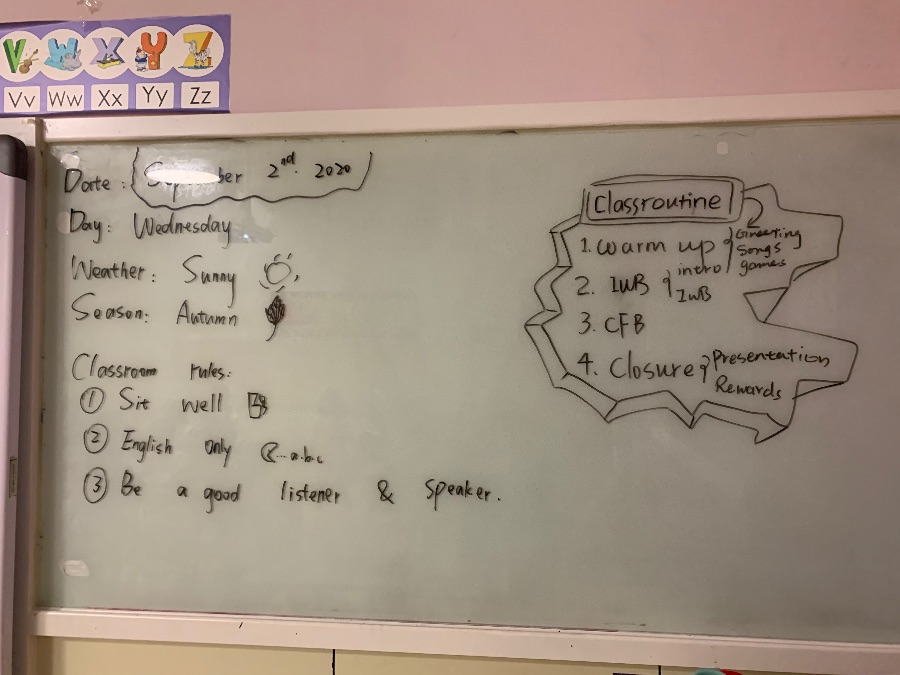 V W X Y Z
Vv Ww Xx Yy Zz
Date: September 2nd. 2020
Day: Wednesday
Weather: Sunny
Season: Autumn
Classroom rules:
① Sit well
② English only a.b.c
③ Be a good listener & speaker.
Classroutine
1. Warm up
Greeting
Songs
games
2. IWB
intro
IWB
3. CFB
4. Closure
Presentation
Rewards